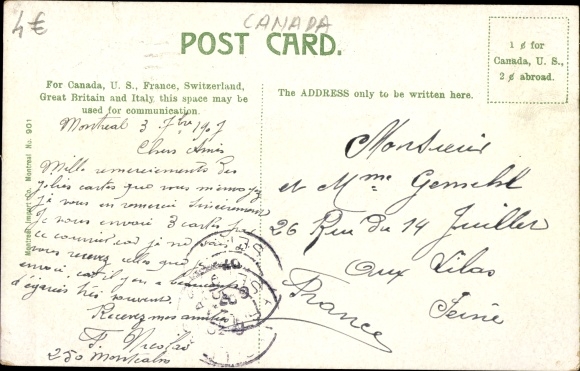 4€
CANADA
POST CARD.
1 ¢ for
Canada, U. S.,
2 ¢ abroad.
For Canada, U. S., France, Switzerland,
Great Britain and Italy, this space may be
used for communication.
The ADDRESS only to be written here.
Montreal Import Co. Montreal No. 901
Montreal 3 7bre 1907
Chers Amis
Mille remerciements des
jolies cartes que vous m'envoyez
je vous en remercie sincèrement
Je vous envoie 3 cartes par
ce courrier car je ne sais
vous recevez celles que je
envoi, car il y en a beaucoup
d'égarées très souvent.
Recevez mes amitiés
F. Nicolas
250 Montcalm
Monsieur
et Mme
26 Rue du 14 Juillet
Aux Lilas
Seine
France